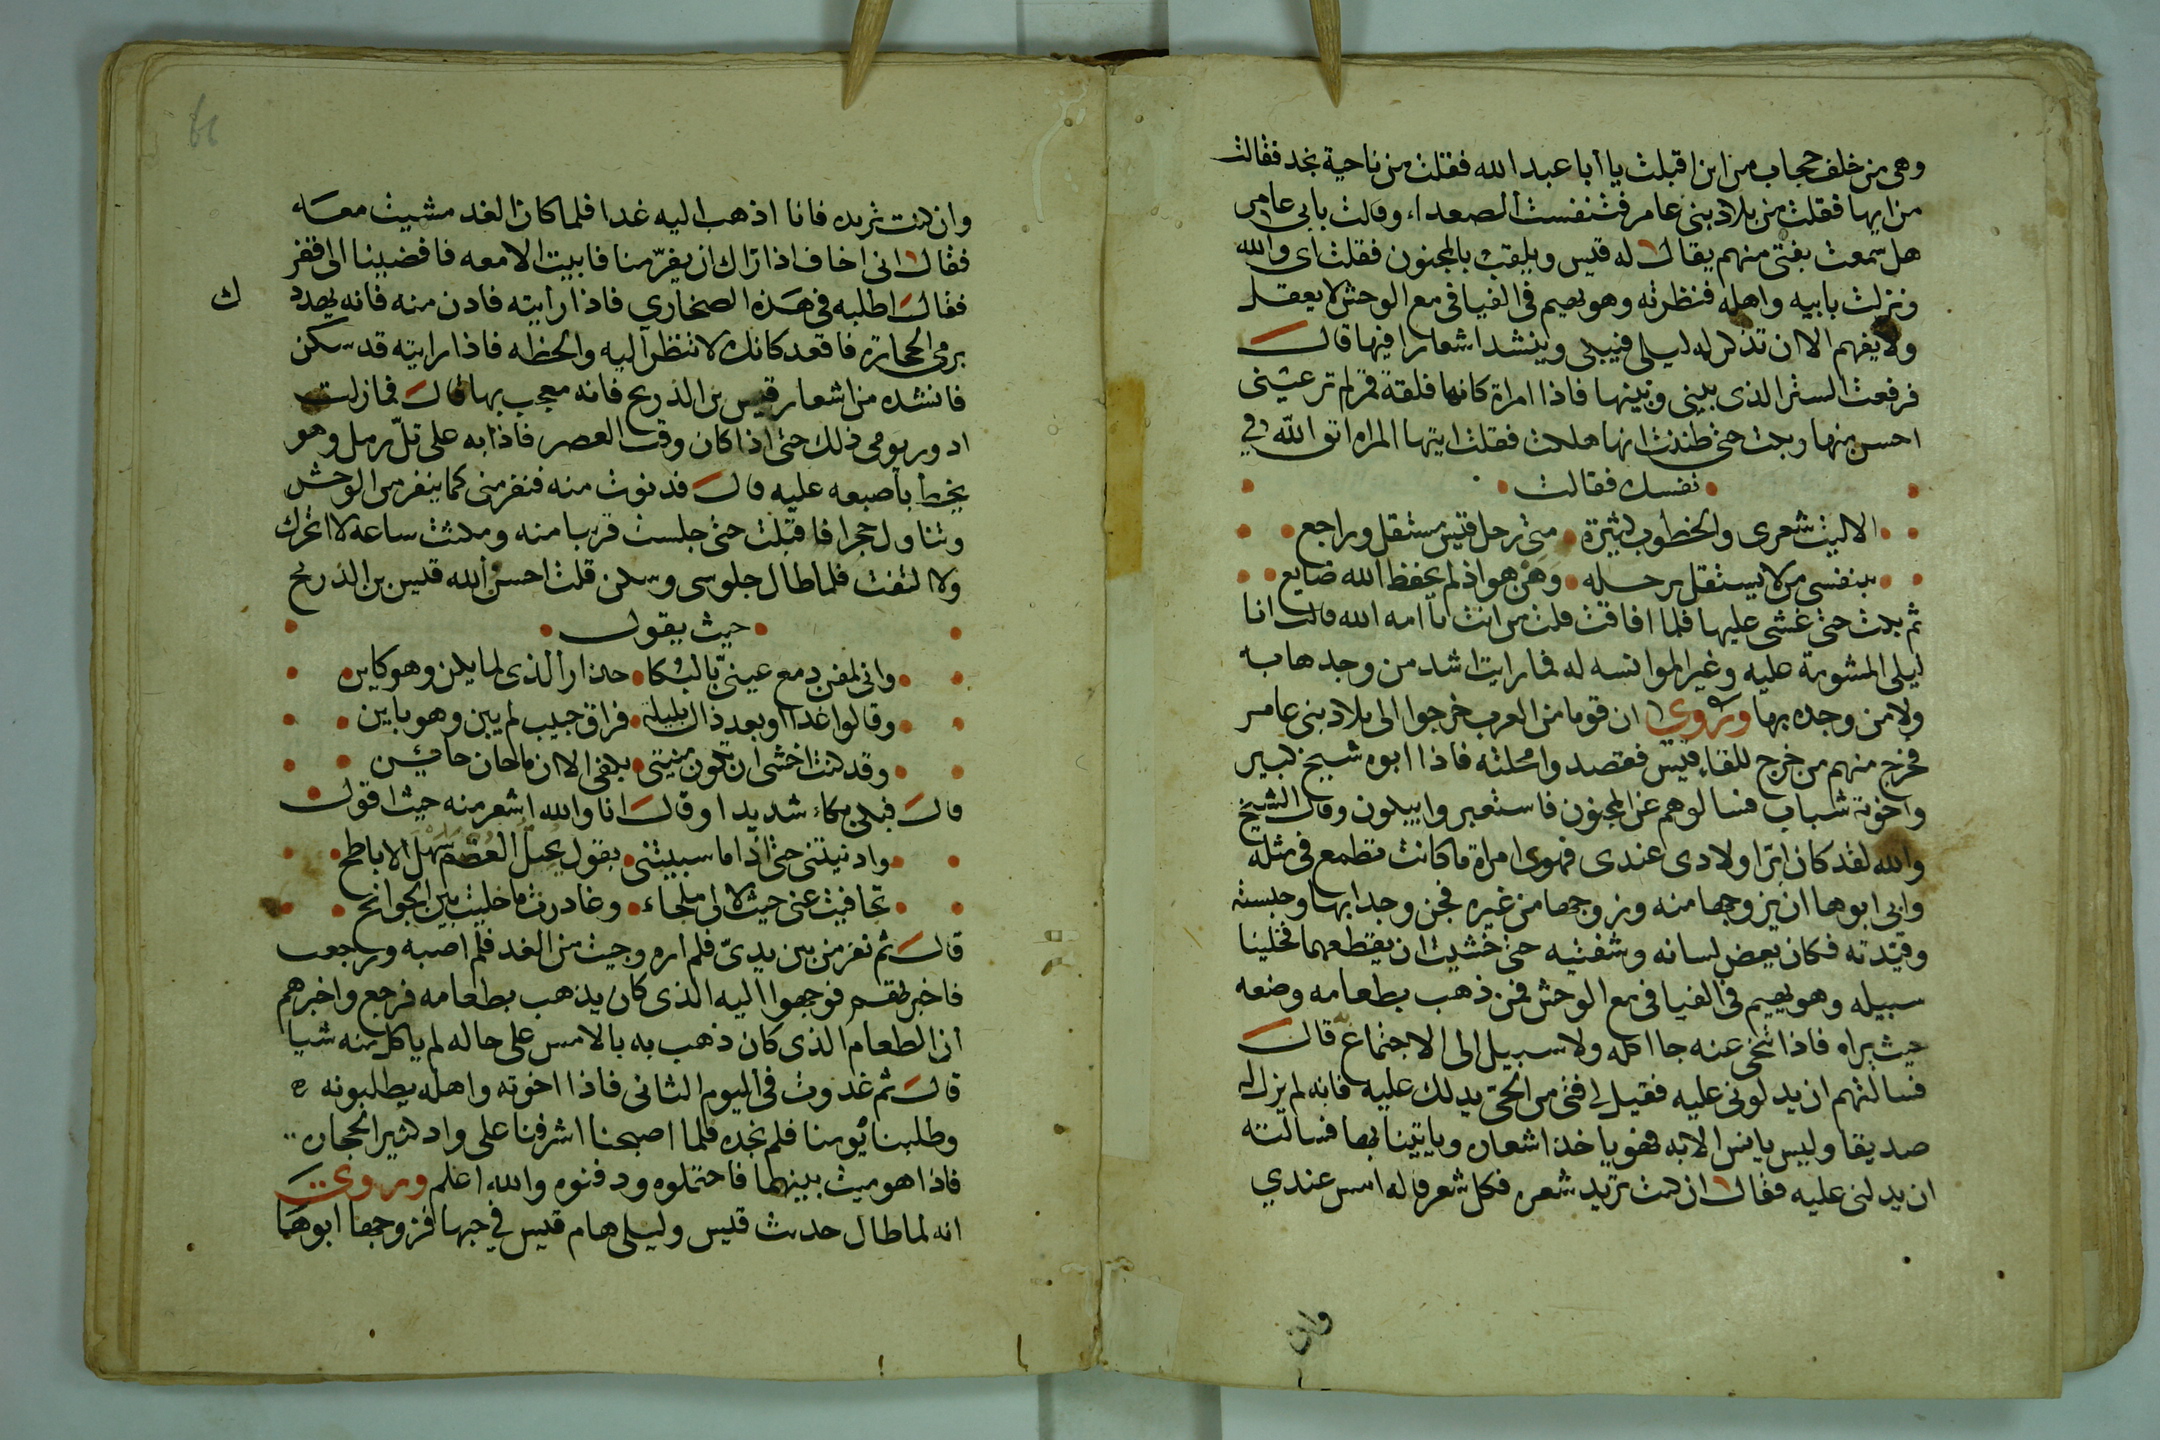 وهي من خلف حجاب من اين اقبلت يا أبا عبد الله فقلت من ناحية نجد فقالت
من ايها فقلت من بلاد بني عامر فتنفست الصعداء وقالت بابي عامر
هل سمعت بفتى منهم يقال له قيس ويلقب بالمجنون فقلت اى والله
ونزلت بابيه واهله فنظرته وهو يهيم في الفيافي مع الوحش لا يعقل
ولا يفهم الا ان تذكر له ليلى فيبكي وينشد اشعارا فيها قال
فرفعت الستر الذى بيني وبينها فاذا امراة كانها فلقة قمر لم تر عيني
احسن منها وبكت حتى ظننت انها هلكت فقلت ايتها المراه اتق الله في
نفسك فقالت
الا ليت شعرى والخطوب كثيرة متى رحل قيس مستقل وراجع
بنفسى من لا يستقل برحله ومن هو اذ لم يحفظ الله ضايع
ثم بكت حتى غشى عليها فلما افاقت قلت من انت يا امه الله قالت انا
ليلى المشومة عليه وغير الموانسه له فما رايت اشد من وجدها به
ولا من وجده بها وروى ان قوما من العرب خرجوا الى بلاد بني عامر
فخرج منهم من خرج للقاء قيس فقصد وا محلته فاذا ابوه شيخ كبير
واخوته شباب فسالوهم عن المجنون فاستعبر وا يبكون وقال الشيخ
والله لقد كان ابرا ولادى عندى فهوى امراة ما كانت تطمع في مثله
وابى ابوها ان يزوجها منه وزوجها من غيره فجن وجدا بها وحبسته
وقيدته فكان يعض لسانه وشفتيه حتى خشيت ان يقطعهما فخلينا
سبيله وهو يهيم في الفيافي مع الوحش فمن ذهب بطعامه وضعه
حيث يراه فاذا تنحى عنه جا اكله ولا سبيل الى الاجتماع قال
فسالتهم ان يدلوني عليه فقيل لى فتى من الحي يدلك عليه فانه لم يزل له
صديقا وليس يانس الا به فهو ياخذ اشعاره وياتينا بها فسالته
ان يدلني عليه فقال ان كنت تريد شعره فكل شعر قاله امس عندي
وان
وان كنت تريده فانا اذهب اليه غدا فلما كان الغد مشيت معه
فقال انى اخاف اذا تراك ان يفر منا فابيت الا معه فافضينا الى قفر
فقال اطلبه في هذه الصخارى فاذا رايته فادن منه فانه يهددك
برمى الحجارة فاقعد كانك لا تنظر اليه والحظه فاذا رايته قد سكن
فانشده من اشعار قيس بن الذريح فانه معجب بها قال فما زلت
ادور يومى ذلك حتى اذا كان وقت العصر فاذا به على تل رمل وهو
يخط بأصبعه عليه قال فدنوت منه فنفر منى كما ينفر من الوحش
وتناول حجرا فاقبلت حتى جلست قربا منه ومكثت ساعه لا اتحرك
ولا التفت فلما طال جلوسى وسكن قلت احسن الله قيس بن الذريح
حيث يقول
وانى لمفن دمع عينى بالبكا حذارا لذى لما يكن وهو كاين
وقالوا غدا او بعد ذاك بليلة فراق حبيب لم يبن وهو باين
وقد كنت اخشى ان تكون منيتى بكفى الا ان ما حان حائن
قال فبكى بكاء شديدا وقال انا والله اشعر منه حيث اقول
وادنيتنى حتى اذا ما سبيتنى بقول يحل العصم سهل الاباطح
تجافيت عنى حيث لا لى ملجاء وغادرت ما خليت بين الجوانح
قال ثم نفر من بين يدى فلم اره وجيت من الغد فلم اصبه ورجعت
فاخبرتهم فوجهوا اليه الذى كان يذهب بطعامه فرجع واخبرهم
ان الطعام الذى كان ذهب به بالامس على حاله لم ياكل منه شيا
قال ثم غدوت في اليوم الثانى فاذا اخوته واهله يطلبونه
وطلبنا يومنا فلم نجده فلما اصبحنا اشرفنا على واد كثير الحجاره
فاذا هو ميت بينهما فاحتملوه ودفنوه والله اعلم وروى
انه لما طال حديث قيس وليلى هام قيس في حبها فزوجها ابوها